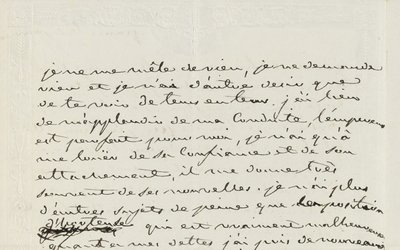 je ne me mêle de rien, je ne demande
rien et je n'ai d'autre desir que
de te voir de tems en tems. j'ai lieu
de m'applaudir de ma Conduite, l'empereur
est parfait pour moi, je n'ai qu'à
me louer de sa Confiance et de son
attachement, il me donne très
souvent de ses nouvelles. je n'ai plus
d'autres sujets de peine que la position
d'hortense qui est vraiment malheureuse
quant à mes dettes j'ai pris de nouveaux